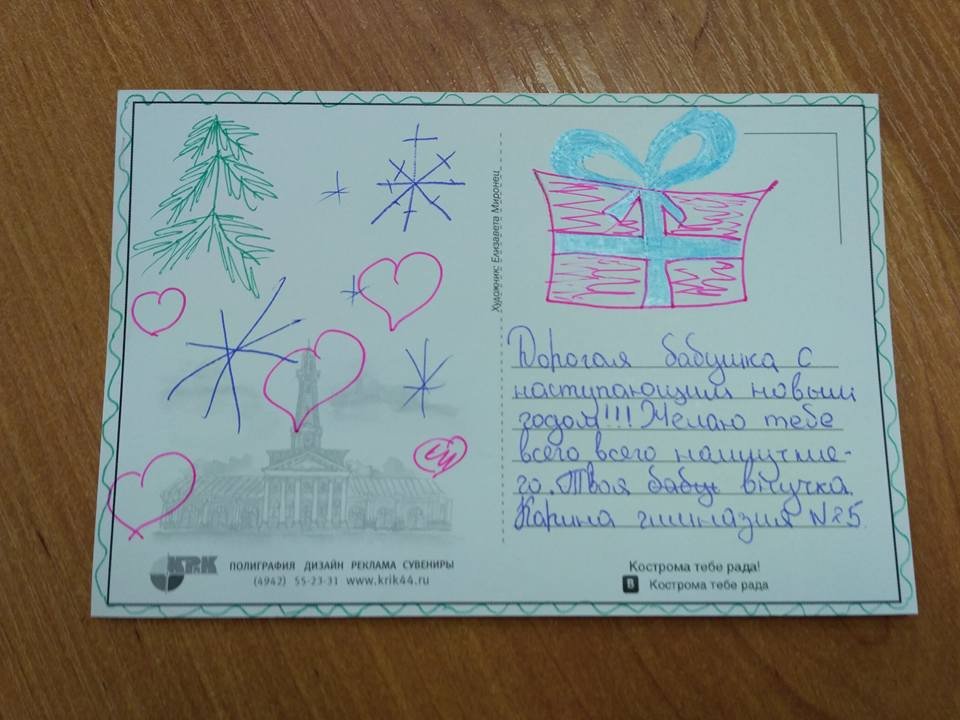 Художник: Елизавета Миронец
Дорогая бабушка с
наступающим новым
годом!!! Желаю тебе
всего всего наилучше-
го. Твоя бабу внучка
Карина гимназия №25
KRK
ПОЛИГРАФИЯ ДИЗАЙН РЕКЛАМА СУВЕНИРЫ
(4942) 55-23-31 www.krik44.ru
Кострома тебе рада!
В Кострома тебе рада